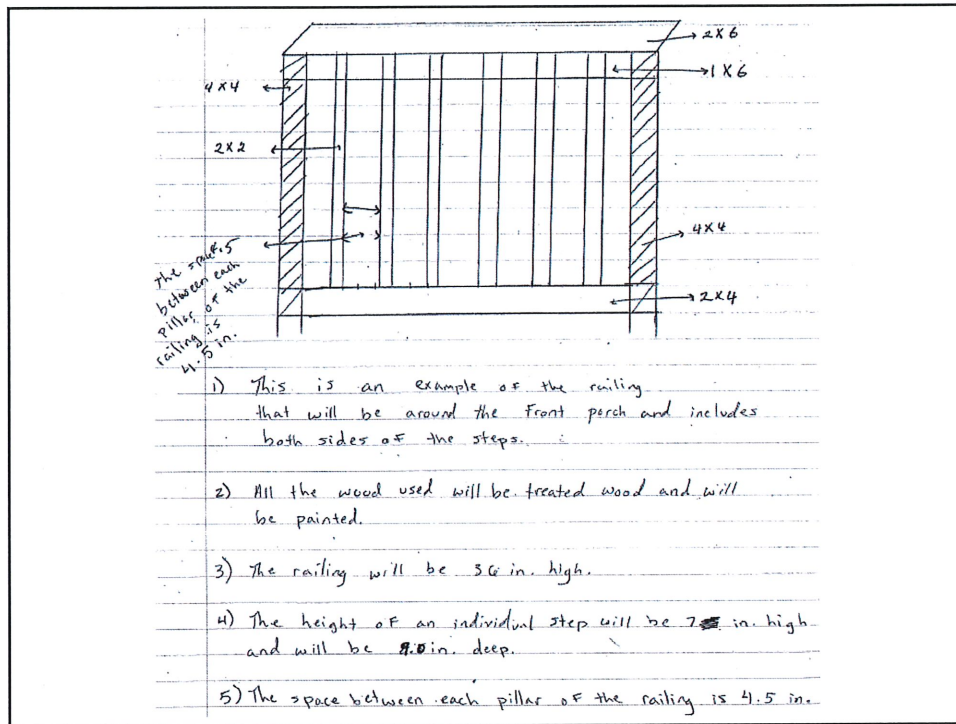 2x6
1x6
4x4
2x2
4x4
2x4
The
between each
pillar of the
railing is
4.5 in.
1) This is an example of the railing
that will be around the Front porch and includes
both sides of the steps.
2) All the wood used will be treated wood and will
be painted.
3) The railing will be 36 in. high.
4) The height of an individual step will be 7 in. high
and will be in. deep.
5) The space between each pillar of the railing is 4.5 in.